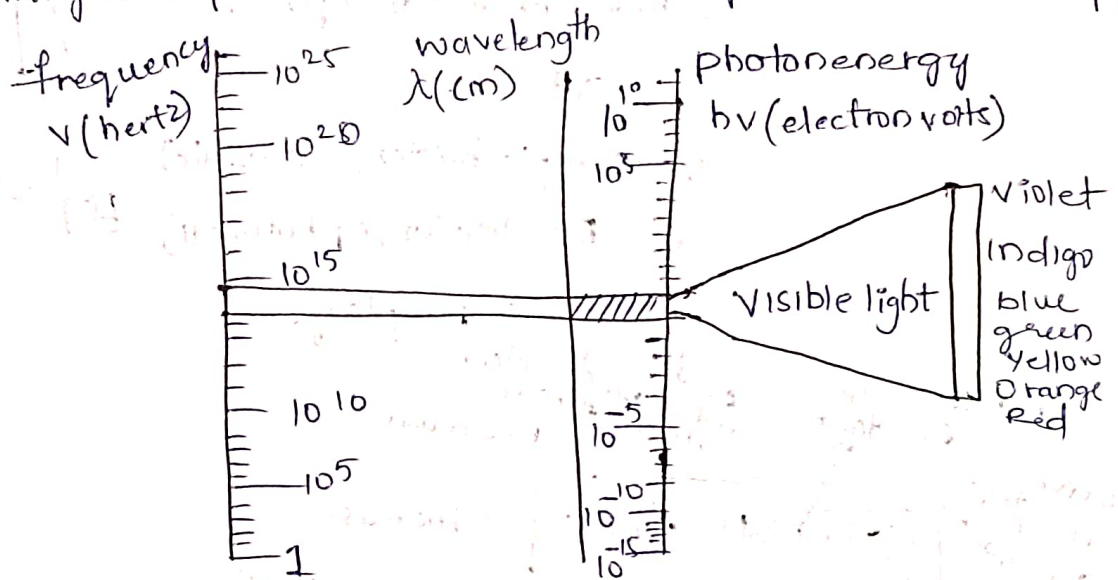 frequency
ν (hertz)
10^25
10^20
10^15
10^10
10^5
1
wavelength
λ (cm)
photonenergy
hν (electron volts)
10^10
10^5
10^-5
10^-10
10^-15
visible light
violet
Indigo
blue
green
yellow
Orange
Red